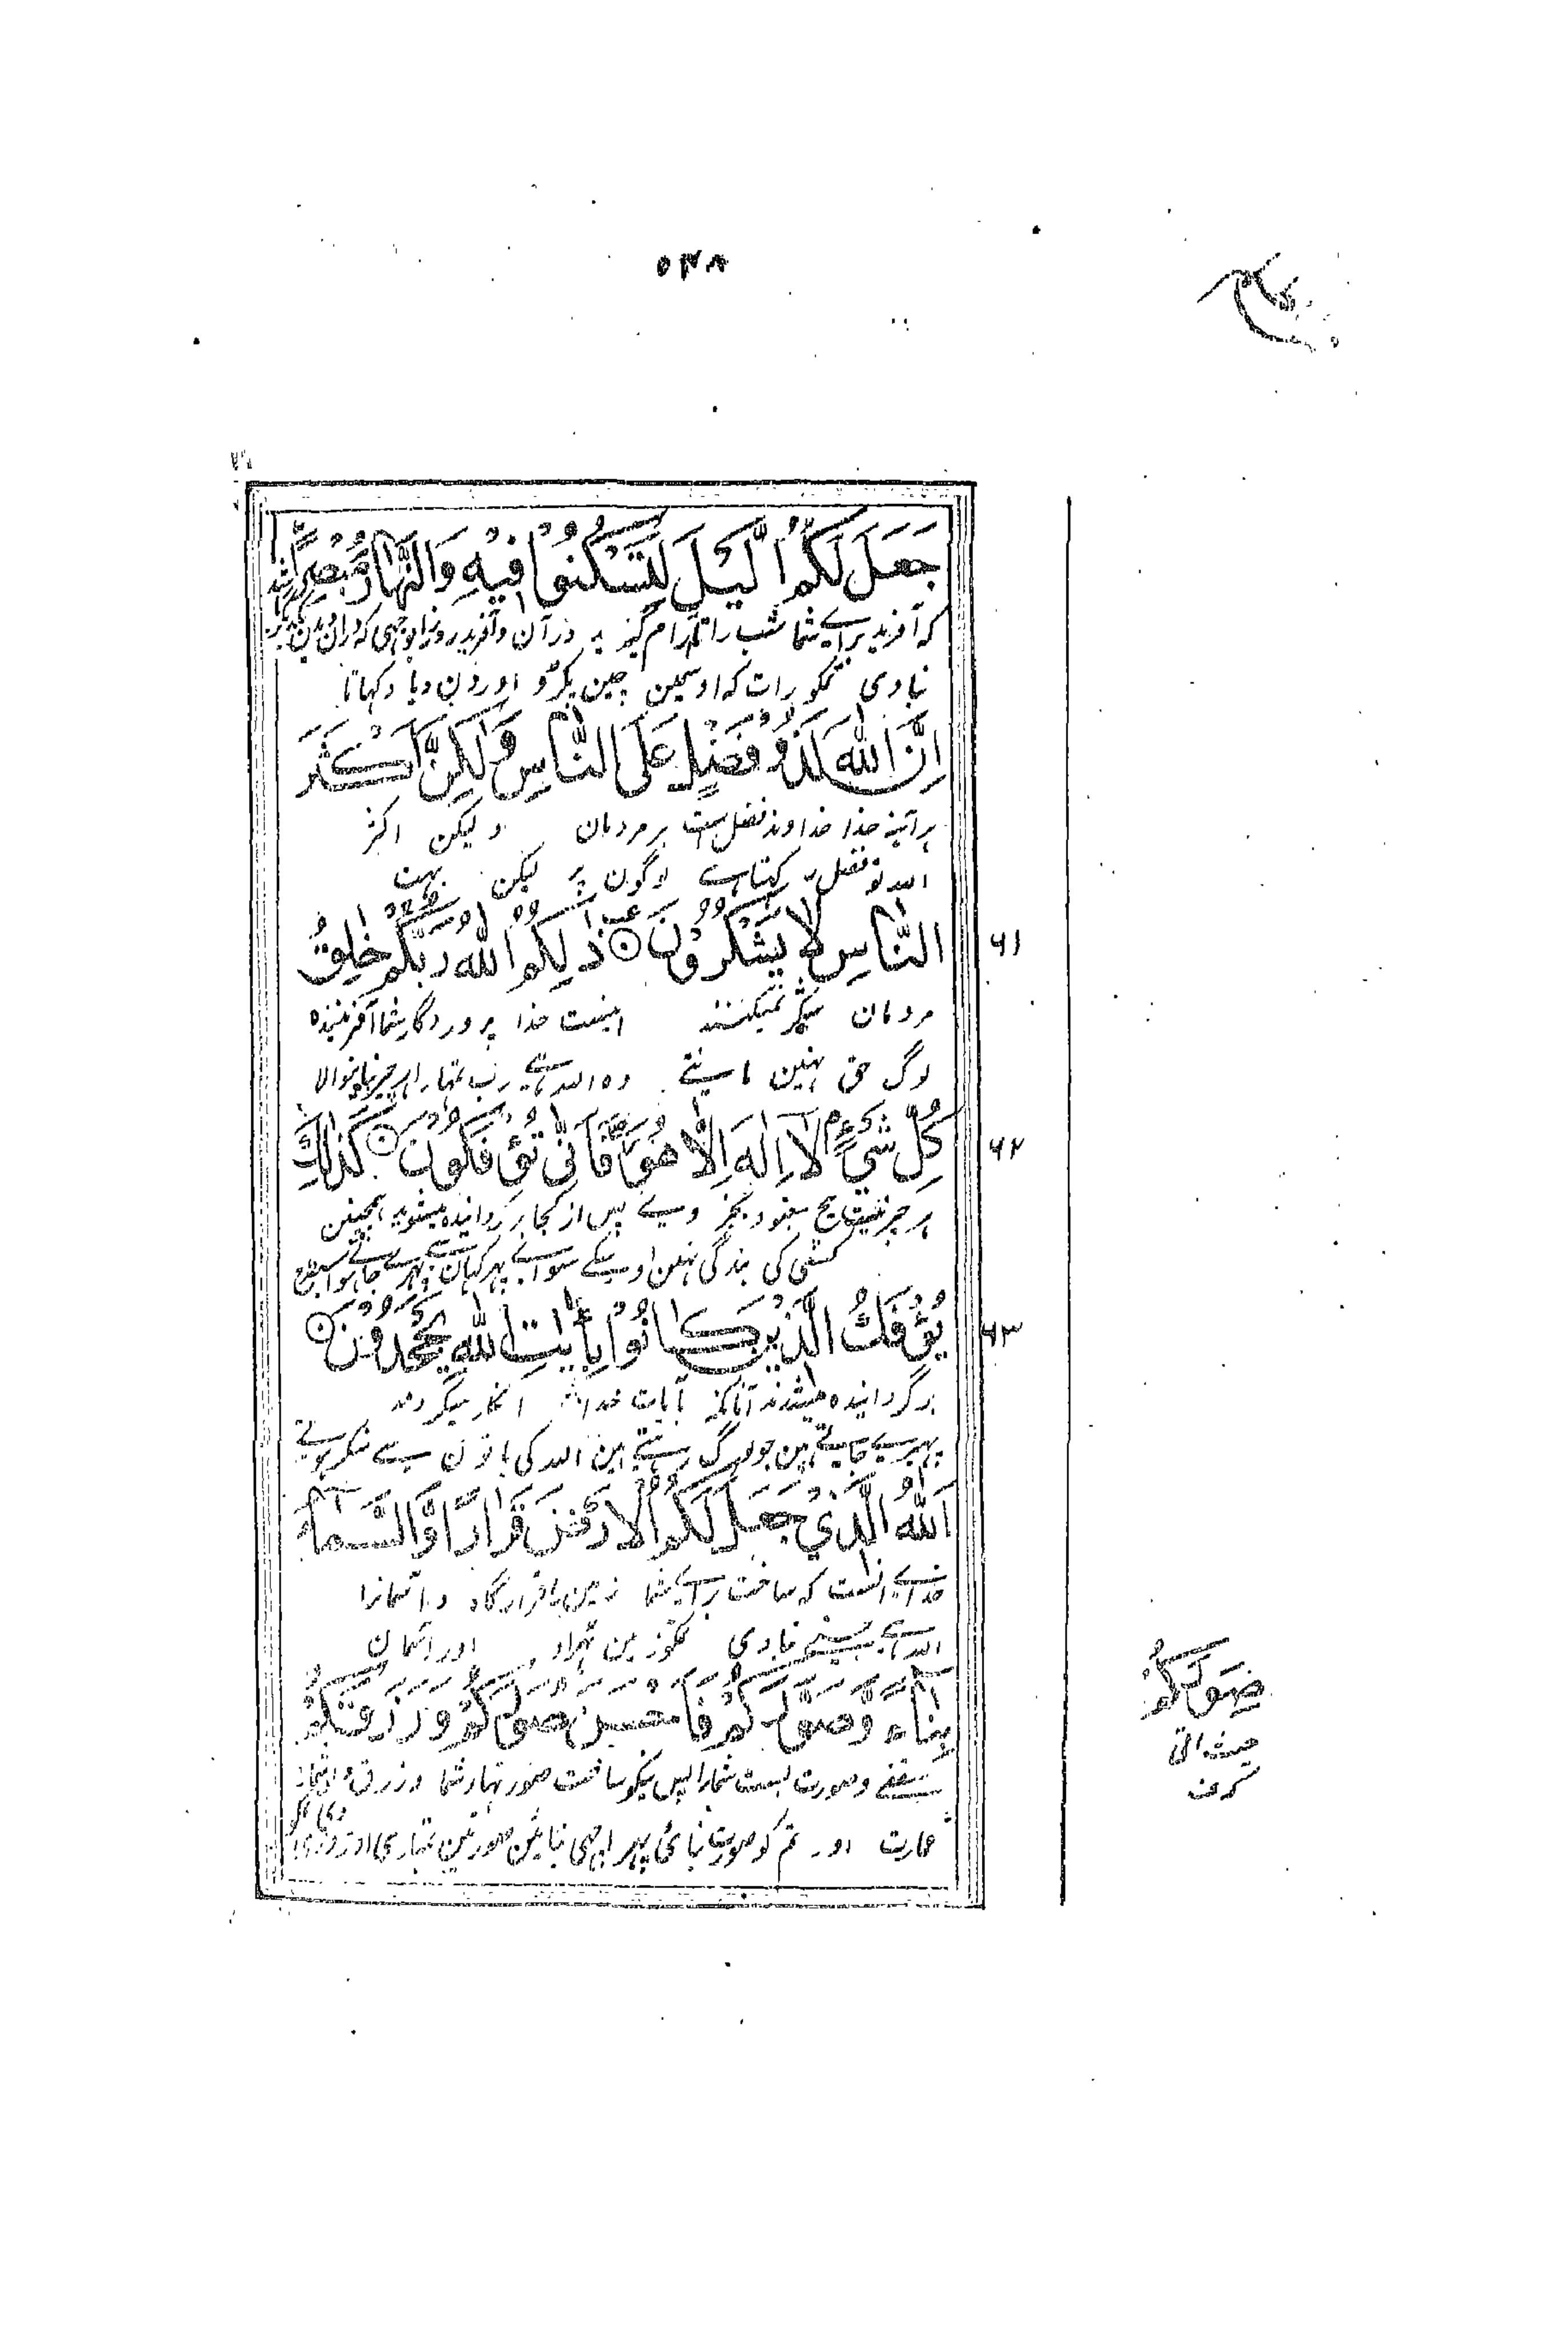 ۵۴۸
جَعَلَ لَكُمُ الَّيْلَ لِتَسْكُنُوْا فِيْهِ وَالنَّهَارَ مُبْصِرًا
که آفرید برای شما شب را تا آرام گیرید در آن و آفرید روز را بوجهی که در آن
بنا دی تمکو رات که اوسمین چین پکڑو اور دن دیا دکہاتا
اِنَّ اللهَ لَذُوْ فَضْلٍ عَلَى النَّاسِ وَلٰكِنَّ اَكْثَرَ
هر آینه خدا خداوند فضل است بر مردمان و لیکن اکثر
الله تو فضل رکہتا ہے لوگون پر لیکن بہت
النَّاسِ لَا يَشْكُرُوْنَ ۝ ذٰلِكُمُ اللهُ رَبُّكُمْ خٰلِقُ
۶۱
مردمان شکر نمیکنند اینست خدا پروردگار شما آفریننده
لوگ حق نہین مانتے وہ الله ہے رب تمہارا ہر چیز بنانیوالا
كُلِّ شَيْءٍ لَا اِلٰهَ اِلَّا هُوَ فَاَنّٰى تُؤْفَكُوْنَ ۝ كَذٰلِكَ
۶۲
هر چیز نیست هیچ معبود بجز وے پس از کجا برگردانیده میشوید همچنین
کسی کی بندگی نہین اوسکے سوائے پہر کہان سے پہرے جاتے ہو اسیطرح
يُؤْفَكُ الَّذِيْنَ كَانُوْا بِاٰيٰتِ اللهِ يَجْحَدُوْنَ ۝
۶۳
برگردانیده میشدند آنانکه بآیات خدا انکار میکردند
پہیرے جاتے ہین جو لوگ رہتے ہین الله کی باتون سے منکر ہوتے
اَللهُ الَّذِيْ جَعَلَ لَكُمُ الْاَرْضَ قَرَارًا وَّالسَّمَآءَ
خداے آنست که ساخت براے شما زمین را قرارگاه و آسمانرا
الله ہے جسنے بنا دی تمکو زمین ٹہراو اور آسمان
بِنَآءً وَّصَوَّرَكُمْ فَاَحْسَنَ صُوَرَكُمْ وَرَزَقَكُمْ
سقفے و صورت بست شمارا پس نیکو ساخت صورتہاے شما و رزق
عمارت اور تم کو صورت بنائی پہر اچہی بنائین صورتین تمہاری اور روزی
صُوَرَكُمْ